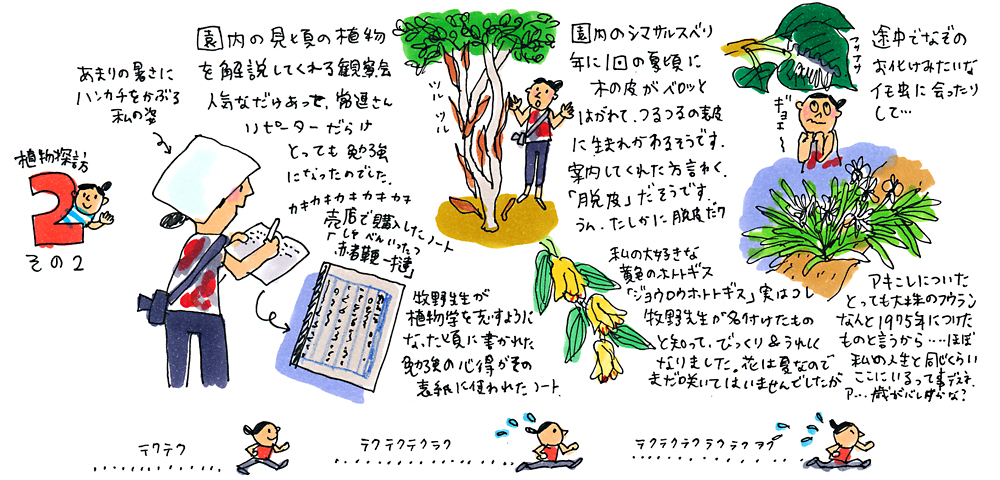 植物探訪
2
その2
あまりの暑さに
ハンカチをかぶる
私の姿
園内の見頃の植物
を解説してくれる観察会
人気なだけあって、常連さん
リピーターだらけ
とっても勉強
になったのでした。
カキカキカキカキカキ
売店で購入したノート
「しゃべんいったつ
赤者鞭一撻」
牧野先生が
植物学を志すように
なった頃に書かれた
勉強の心得がその
表紙に使われたノート
ツルツル
ツルツル
園内のシマサルスベリ
年に1回の夏頃に
木の皮がベロッと
はがれて、つるつるの表皮
に生まれかわるそうです。
案内してくれた方言わく、
「脱皮」だそうです。
うん、たしかに脱皮だワ
私の大好きな
黄色のホトトギス
「ジョウロウホトトギス」実はコレ
牧野先生が名付けたもの
と知って、びっくり&うれしく
なりました。花は夏なので
まだ咲いてはいませんでしたが
途中でなぞの
お化けみたいな
イモ虫に会ったり
して…
ギョエ〜
アキニレについた
とっても大株のフウラン
なんと1975年につけた
ものと言うから…ほぼ
私の人生と同じくらい
ここにいるって事デスネ
ア…歳がバレますかな?
テクテク
テクテクテクテク
テクテクテクテクテクテク